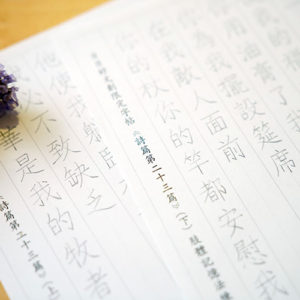 用油膏了
為我擺設筵席
在我敵人面前
你的杖你的竿都安慰我
限定字帖《詩篇第二十三篇》(下) 肢體記憶法
他使我躺臥
必不致缺乏
華是我的牧者
《詩篇第二十三篇》(上)